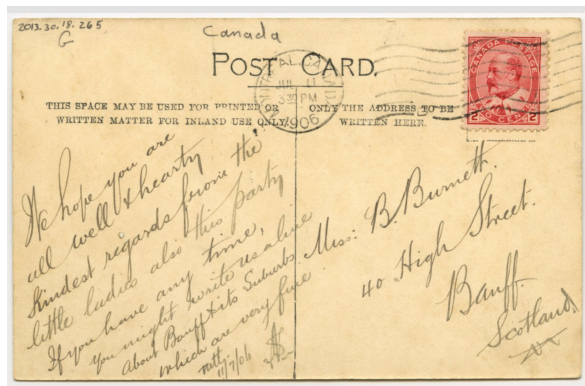 2013.30.18.265
G
Canada
POST CARD.
THIS SPACE MAY BE USED FOR PRINTED OR
WRITTEN MATTER FOR INLAND USE ONLY.
ONLY THE ADDRESS TO BE
WRITTEN HERE.
MONTREAL, CANADA
JUL 11
PM
1906
CANADA POSTAGE
2 CENTS 2
We hope you are
all well & hearty
Kindest regards from the
little ladies also this party
If you have any time,
you might write us a line
about Banff & its Suburbs
which are very fine
11/7/06
Miss: B. Burnett.
40 High Street.
Banff.
Scotland